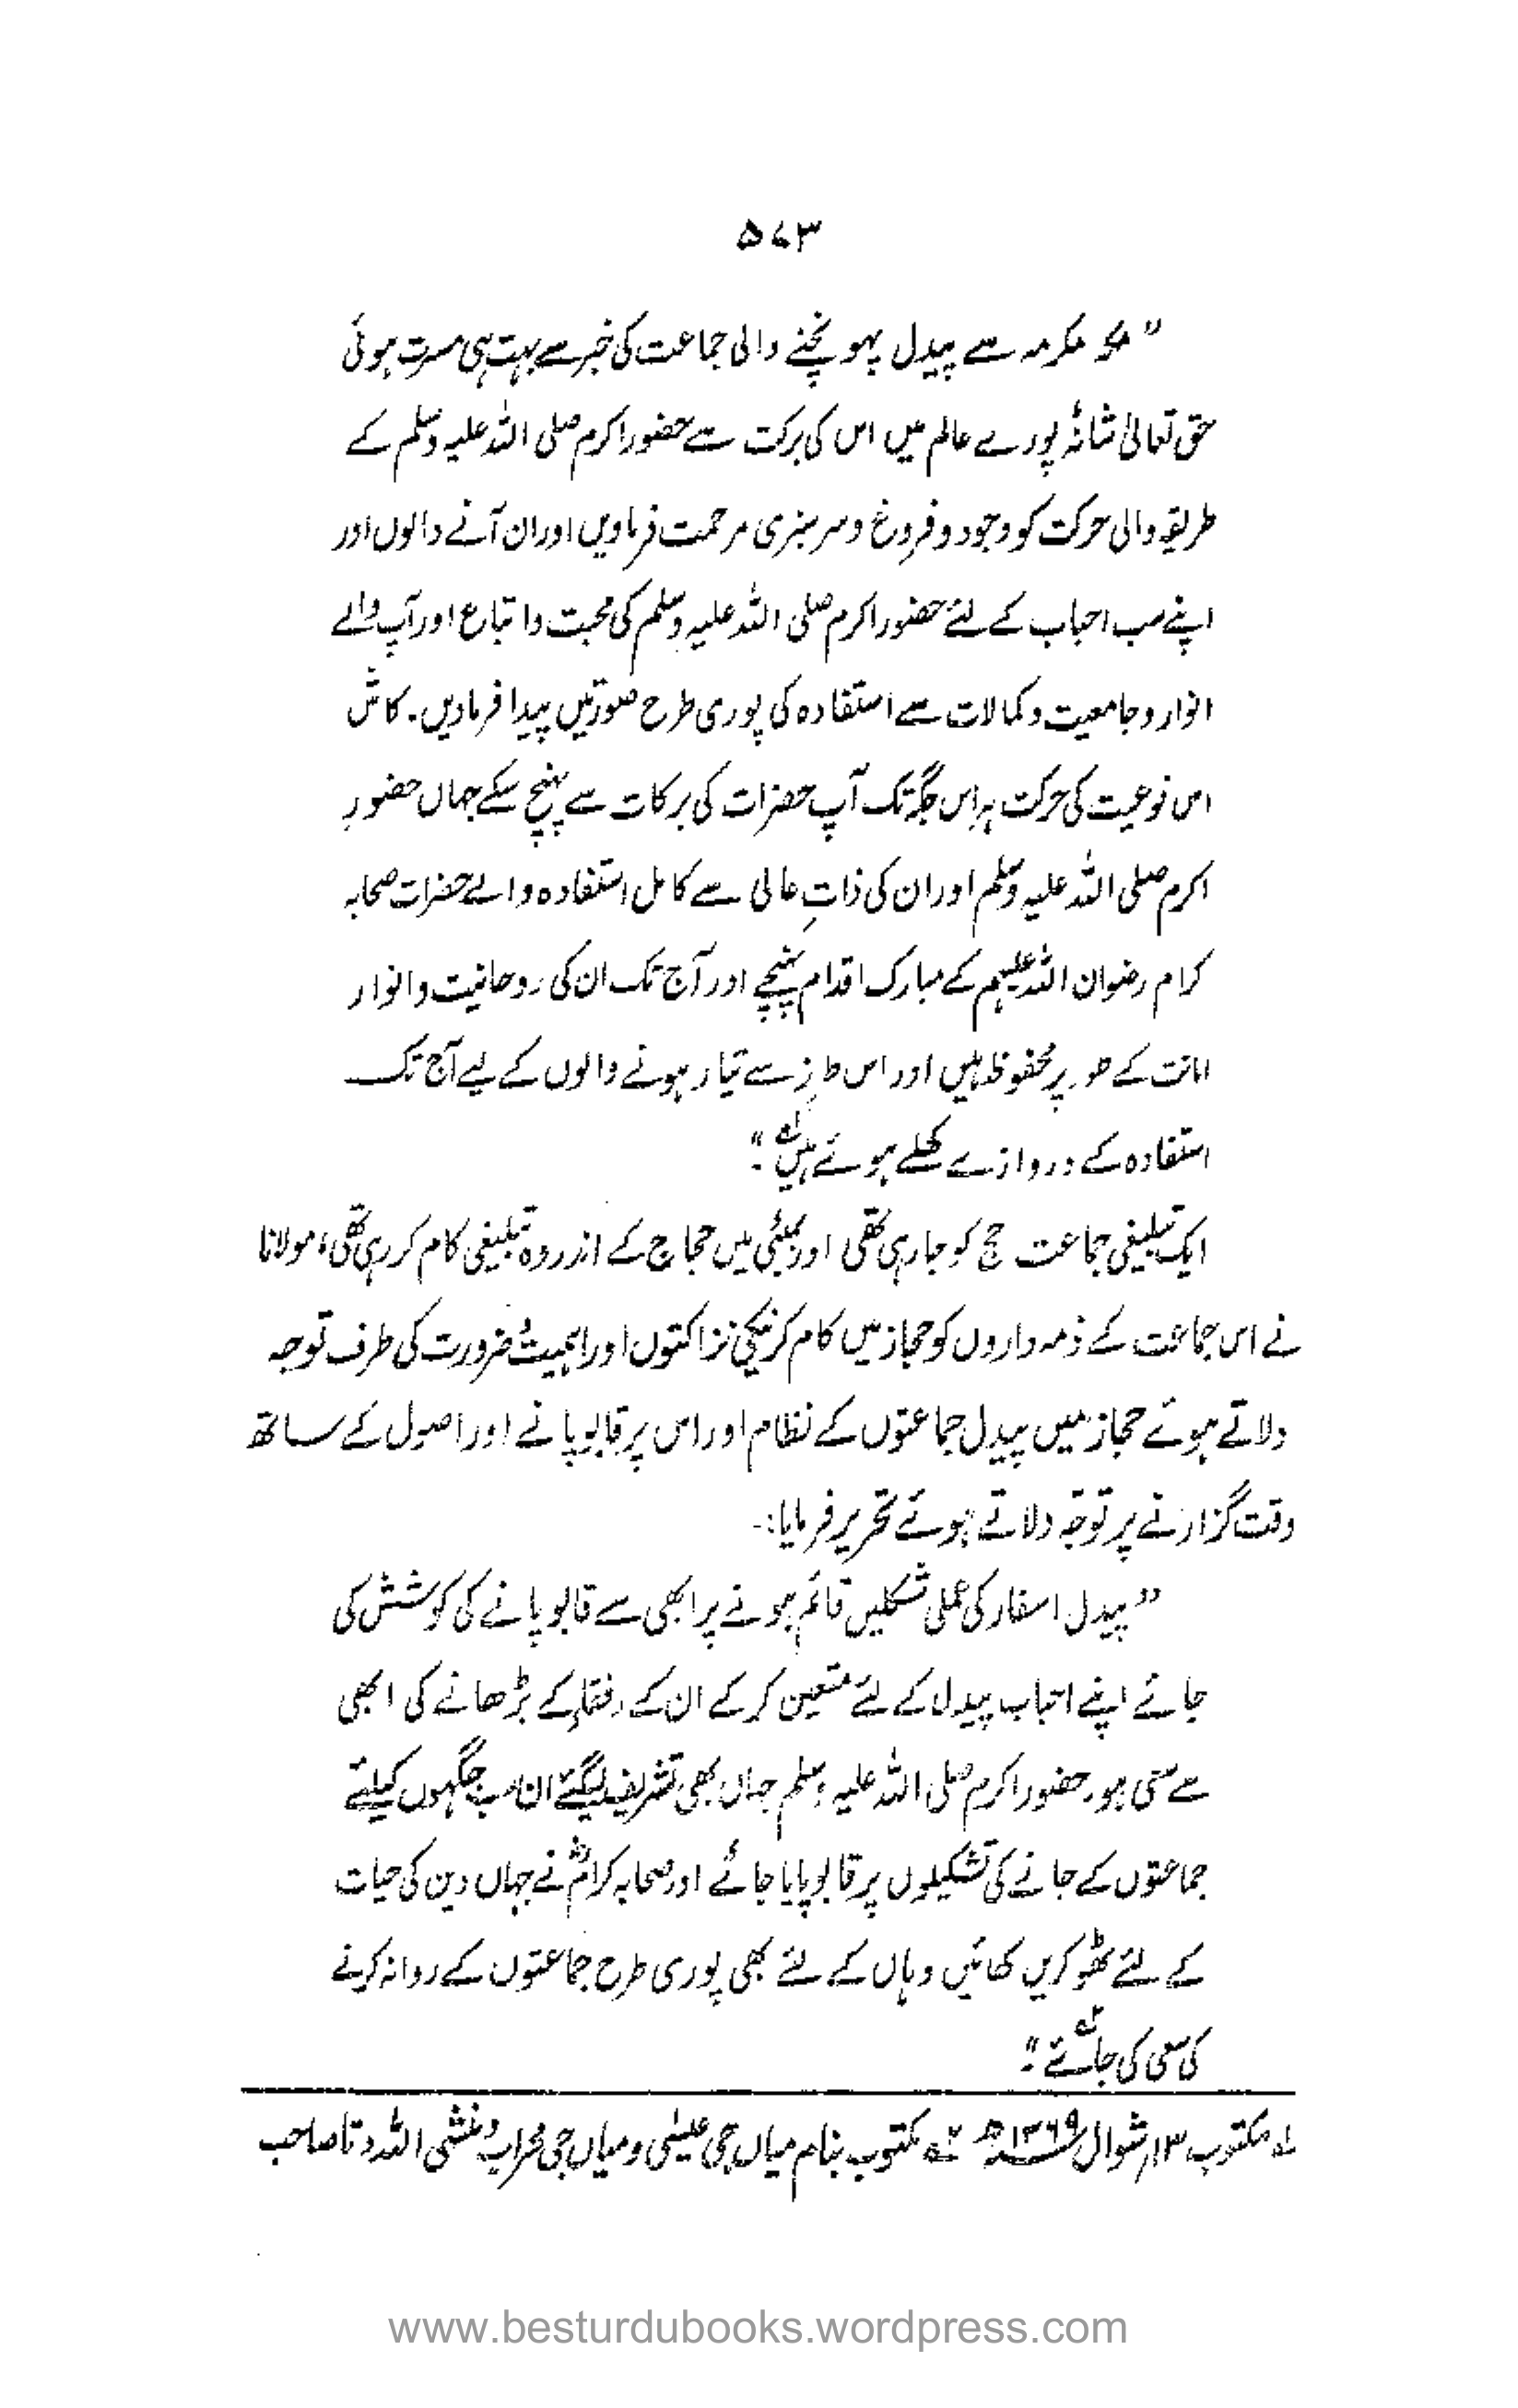 ۵۷۳
"مکہ مکرمہ سے پیدل پہونچنے والی جماعت کی خبر سے بہت ہی مسرت ہوئی
حق تعالیٰ شانہٗ پورے عالم میں اس کی برکت سے حضور اکرم صلی اللہ علیہ وسلم کے
طریقہ والی حرکت کو وجود و فروغ و سرسبزی مرحمت فرماویں اور ان آنے والوں اور
اپنے سب احباب کے لئے حضور اکرم صلی اللہ علیہ وسلم کی محبت و اتباع اور آپ والے
انوار و جامعیت و کمالات سے استفادہ کی پوری طرح صورتیں پیدا فرمادیں۔ کاش
اس نوعیت کی حرکت ہر اس جگہ تک آپ حضرات کی برکات سے پہنچ سکے جہاں حضورِ
اکرم صلی اللہ علیہ وسلم اور ان کی ذاتِ عالی سے کامل استفادہ والے حضرات صحابہ
کرام رضوان اللہ علیہم کے مبارک اقدام پہنچے اور آج تک ان کی روحانیت و انوار
امانت کے طور پر محفوظ ہیں اور اس طرز سے تیار ہونے والوں کے لیے آج تک
استفادہ کے دروازے کھلے ہوئے ہیں۔؎۱"
ایک تبلیغی جماعت حج کو جا رہی تھی اور بمبئی میں حجاج کے اندر وہ تبلیغی کام کر رہی تھی، مولانا
نے اس جماعت کے ذمہ داروں کو حجاز میں کام کرنیکی نزاکتوں اور اہمیت و ضرورت کی طرف توجہ
دلاتے ہوئے حجاز میں پیدل جماعتوں کے نظام اور اس پر قابو پانے اور اصول کے ساتھ
وقت گزارنے پر توجّہ دلاتے ہوئے تحریر فرمایا:-
"پیدل اسفار کی عملی شکلیں قائم ہونے پر ابھی سے قابو پانے کی کوشش کی
جائے اپنے احباب پیدل کے لئے متعین کر کے ان کے رفقاء کے بڑھانے کی ابھی
سے سعی ہو۔ حضور اکرم صلی اللہ علیہ وسلم جہاں بھی تشریف لیگئے ان سب جگہوں کیلئے
جماعتوں کے جانے کی تشکیلوں پر قابو پایا جائے اور صحابہ کرامؓ نے جہاں دین کی حیات
کے لئے ٹھوکریں کھائیں وہاں کے لئے بھی پوری طرح جماعتوں کے روانہ کرنے
کی سعی کی جائے۔؎۲"
؎۱ مکتوب ۱۳؍ شوال ۱۳۶۹ھ ؎۲ مکتوب بنام میاں جی عیسیٰ و میاں جی محراب و منشی اللہ دتا صاحب
www.besturdubooks.wordpress.com